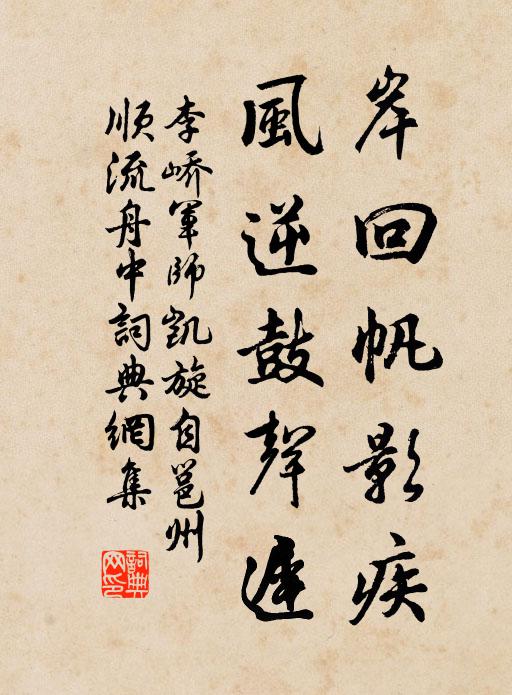 岸回帆影疾
風逆鼓聲遲
李嶠軍師凱旋自邕州
順流舟中詞典網集
詞典
网印